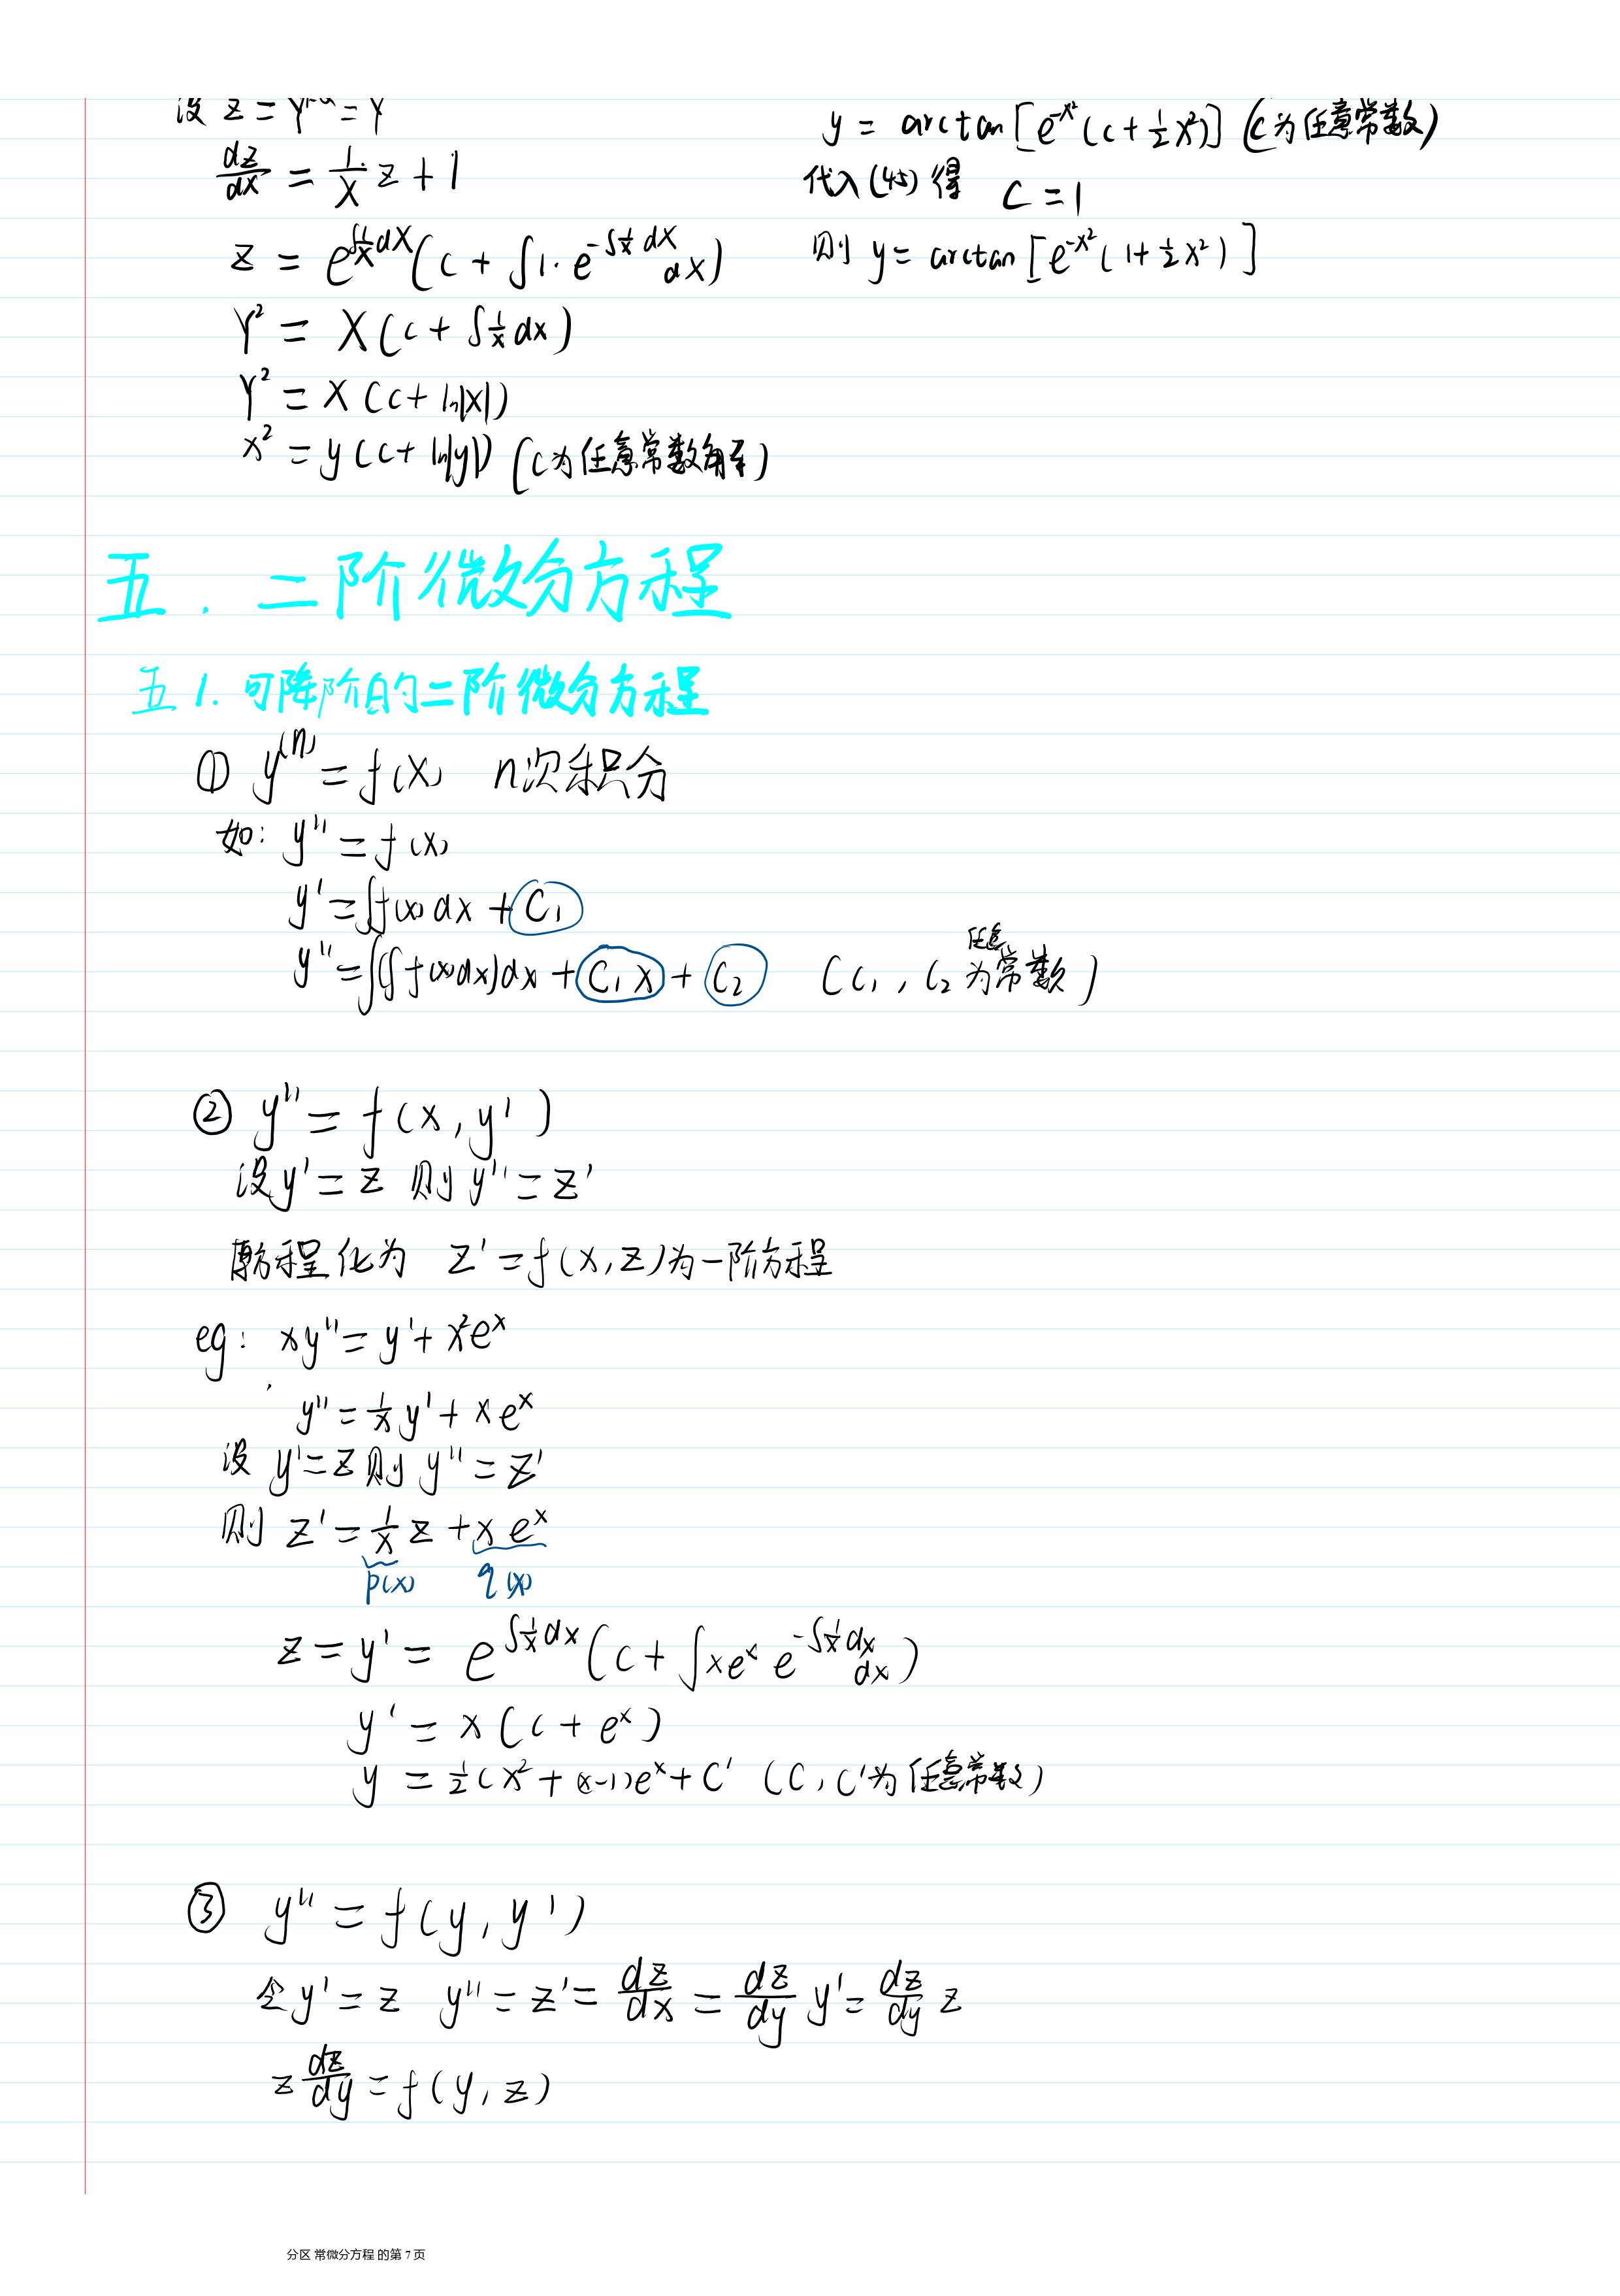 设 z = Y = Y
dz/dx = 1/x z + 1
z = e^{∫1/x dx}(c + ∫1·e^{-∫1/x dx}dx)
Y² = X(c + ∫1/x dx)
Y² = X(c + ln|X|)
x² = y(c + ln|y|) (c为任意常数解)
y = arctan[e^{-x²}(c + 1/2 x²)] (c为任意常数)
代入(45)得 C = 1
则 y = arctan[e^{-x²}(1 + 1/2 x²)]
五. 二阶微分方程
五1. 可降阶的二阶微分方程
① y^{(n)} = f(x) n次积分
如: y'' = f(x)
y' = ∫f(x)dx + C₁
y'' = ∫(∫f(x)dx)dx + C₁x + C₂ (C₁, C₂为任意常数)
② y'' = f(x, y')
设y' = z 则 y'' = z'
原方程化为 z' = f(x, z)为一阶方程
eg: xy'' = y' + x²e^x
y'' = 1/x y' + xe^x
设 y' = z 则 y'' = z'
则 z' = 1/x z + xe^x
p(x) q(x)
z = y' = e^{∫1/x dx}(c + ∫xe^x e^{-∫1/x dx}dx)
y' = x(c + e^x)
y = 1/2(x² + (x-1))e^x + C' (C, C'为任意常数)
③ y'' = f(y, y')
令y' = z y'' = z' = dz/dx = dz/dy y' = dz/dy z
z dz/dy = f(y, z)
分区 常微分方程 的第 7 页